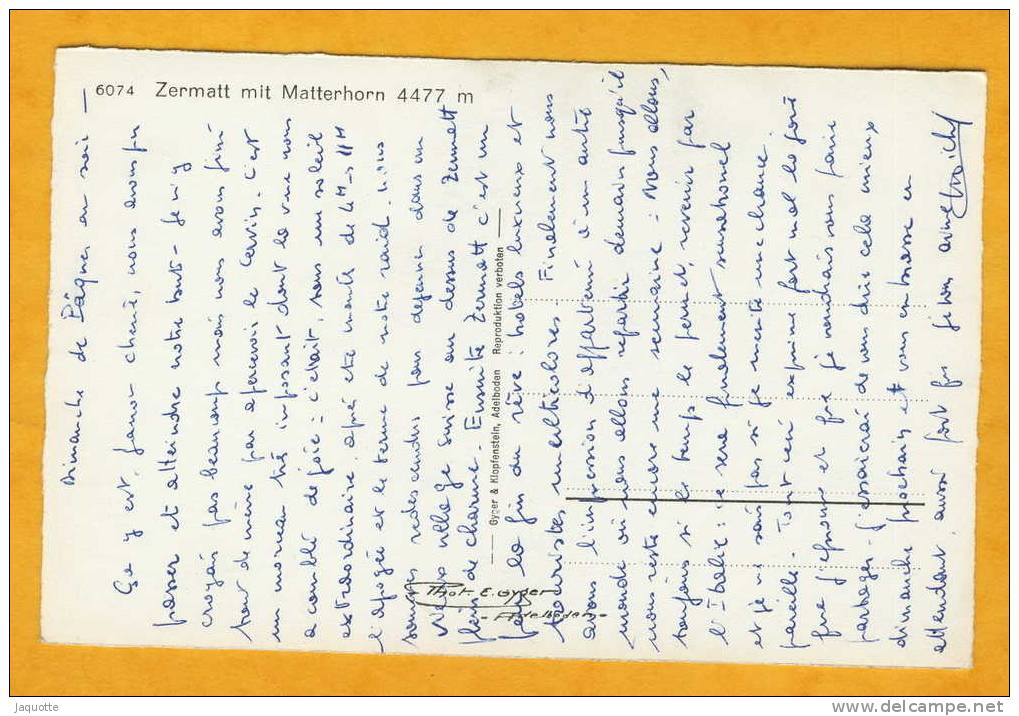 6074 Zermatt mit Matterhorn 4477 m
Dimanche de Pâques au soir —
Ça y est, amour chérie, nous avons pu
passer et atteindre notre but - Je n'y
croyais pas beaucoup mais nous avons fini
tout de même par apercevoir le Cervin. C'est
un morceau très imposant dont la vue nous
a comblé de joie : c'était, sous un soleil
extraordinaire, après cette montée de 4H → 11H
l'apogée et le terme de notre raid. Nous
sommes redescendus pour déjeuner dans un
vieux village suisse au dessus de Zermatt
plein de charme. Ensuite Zermatt c'est un
pour la fin du rêve : hotels luxueux et
touristes multicolores. Finalement nous
avons l'impression d'appartenir à un autre
monde où nous allons repartir demain puisqu'il
nous reste encore une semaine. Nous allons,
toujours si le temps le permet, revenir par
l'Italie : ce sera finalement sensationnel
et je ne sais pas si je mérite une chance
pareille. Tout ceci exprime fort mal la joie
que j'éprouve et que je voudrais vous faire
partager - J'essaierai de vous dire cela mieux
dimanche prochain et vous embrasse en
attendant, aussi fort que
Gyger & Klopfenstein, Adelboden Reproduktion verboten
Phot. E. Gyger
- Adelboden -
Jaquotte
www.delcampe.net